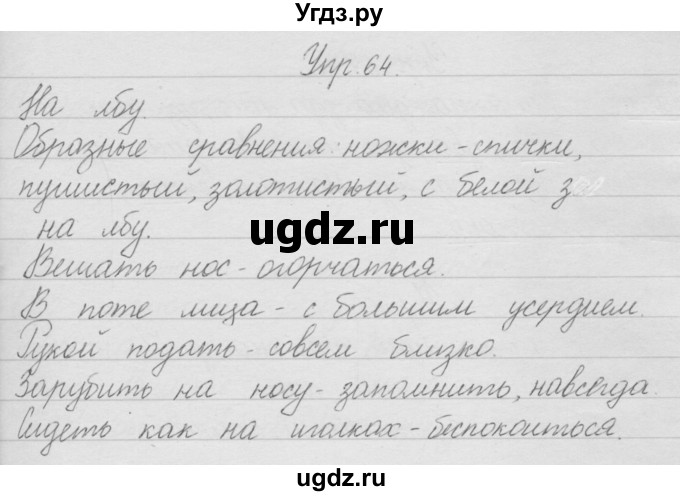 Угдз.ру
Упр. 64.
На лбу.
Образные сравнения: ножки - спички,
пушистый, золотистый, с белой
на лбу.
ugdz.ru
Вешать нос - огорчаться.
В поте лица - с большим усердием.
Рукой подать - совсем близко.
Зарубить на носу - запомнить, навсегда.
Сидеть как на иголках - беспокоиться.
ugdz.ru